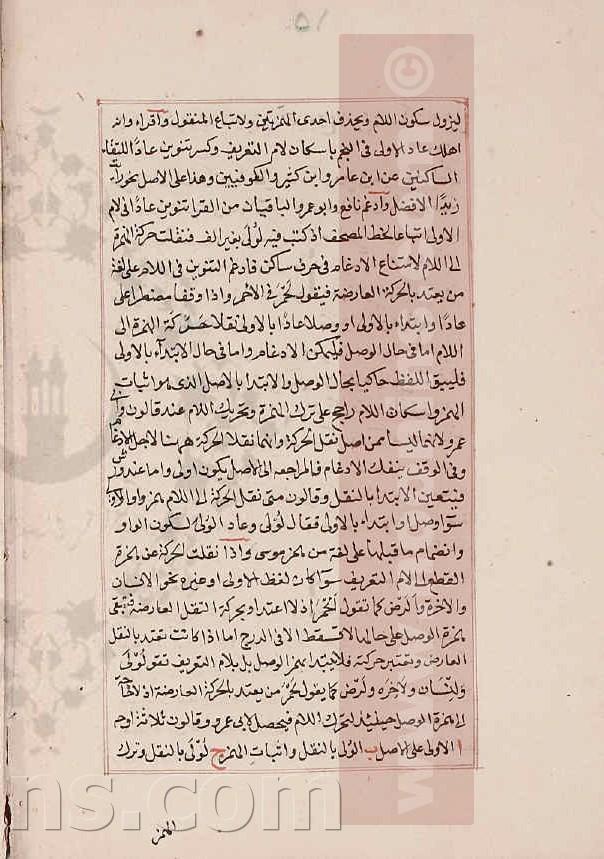 ٥١
ليزول سكون اللام وبحذف احدى الهمزتين ولاتباع المنقول واقراء وانه
اهلك عاد الاولى في النجم باسكان لام التعريف وكسر تنوين عادًا لالتقاء
الساكنين عن ابن عامر وابن كثير والكوفيين وهذا على الاصل نحو رأيت
زيدًا الافضل وادغم نافع وابو عمرو الباقيان من القرا تنوين عادًا فى لام
الاولى اتباعا لخط المصحف اذ كتب فيه لُولى بغير الف فنقلت حركة الهمزة
الى اللام لامتناع الادغام فى حرف ساكن فادغم التنوين فى اللام على لغة
من يعتد بالحركة العارضة فيقول لَحْمَر فى الاحمر واذا وقفا مضطرا على
عادًا وابتداء بالاولى او وصلا عادًا بالاولى نقلا حركة الهمزة الى
اللام اما فى حال الوصل فليمكن الادغام واما فى حال الابتدآء بالاولى
فليبق اللفظ حاكيا بحال الوصل والابتدا بالاصل الذى هو اثبات
الهمز واسكان اللام راجح على ترك الهمزة وتحريك اللام عند قالون وابى
عمرو لانهما ليسا ممن اصل نقل الحركة وانما نقلا الحركة ههنا لاجل الادغام
وفى الوقف ينفك الادغام فالمراجعه الى الاصل يكون اولى واما عند ورش
فيتعين الابتدا بالنقل وقالون متى نقل الحركة الى اللام همز واو الاولى
سوآ وصل او ابتداء بالاولى فقال لُولى وعاد الولى لسكون الواو
وانضمام ماقبلها على لغة من همز موسى واذا نقلت الحركة عن همزة
القطع الى لام التعريف سوآ كان لفظ الاولى او غيره نحو الانسان
والاخرة والارض كما تقول اَلحْمَر اذ لا اعتداد بحركة النقل العارضة فتبقى
همزة الوصل على حالها لا تسقط الا فى الدرج اما اذا كانت تعتد بالنقل
العارض وتعتبر حركته فلا يبتدا بهمز الوصل بل بلام التعريف تقول لُولى
ولِنْسان ولاخِره ولَرض كما يقول لَحْمَر من يعتد بالحركة العارضة اذ لا حاجة
الى همزة الوصل حينئذ لتحرك اللام فيحصل لابى عمرو وقالون ثلاثة اوجه
ا الاولى على الاصل ب الولى بالنقل واثبات الهمز ج لُولى بالنقل وترك
الهمز
ns.com
©